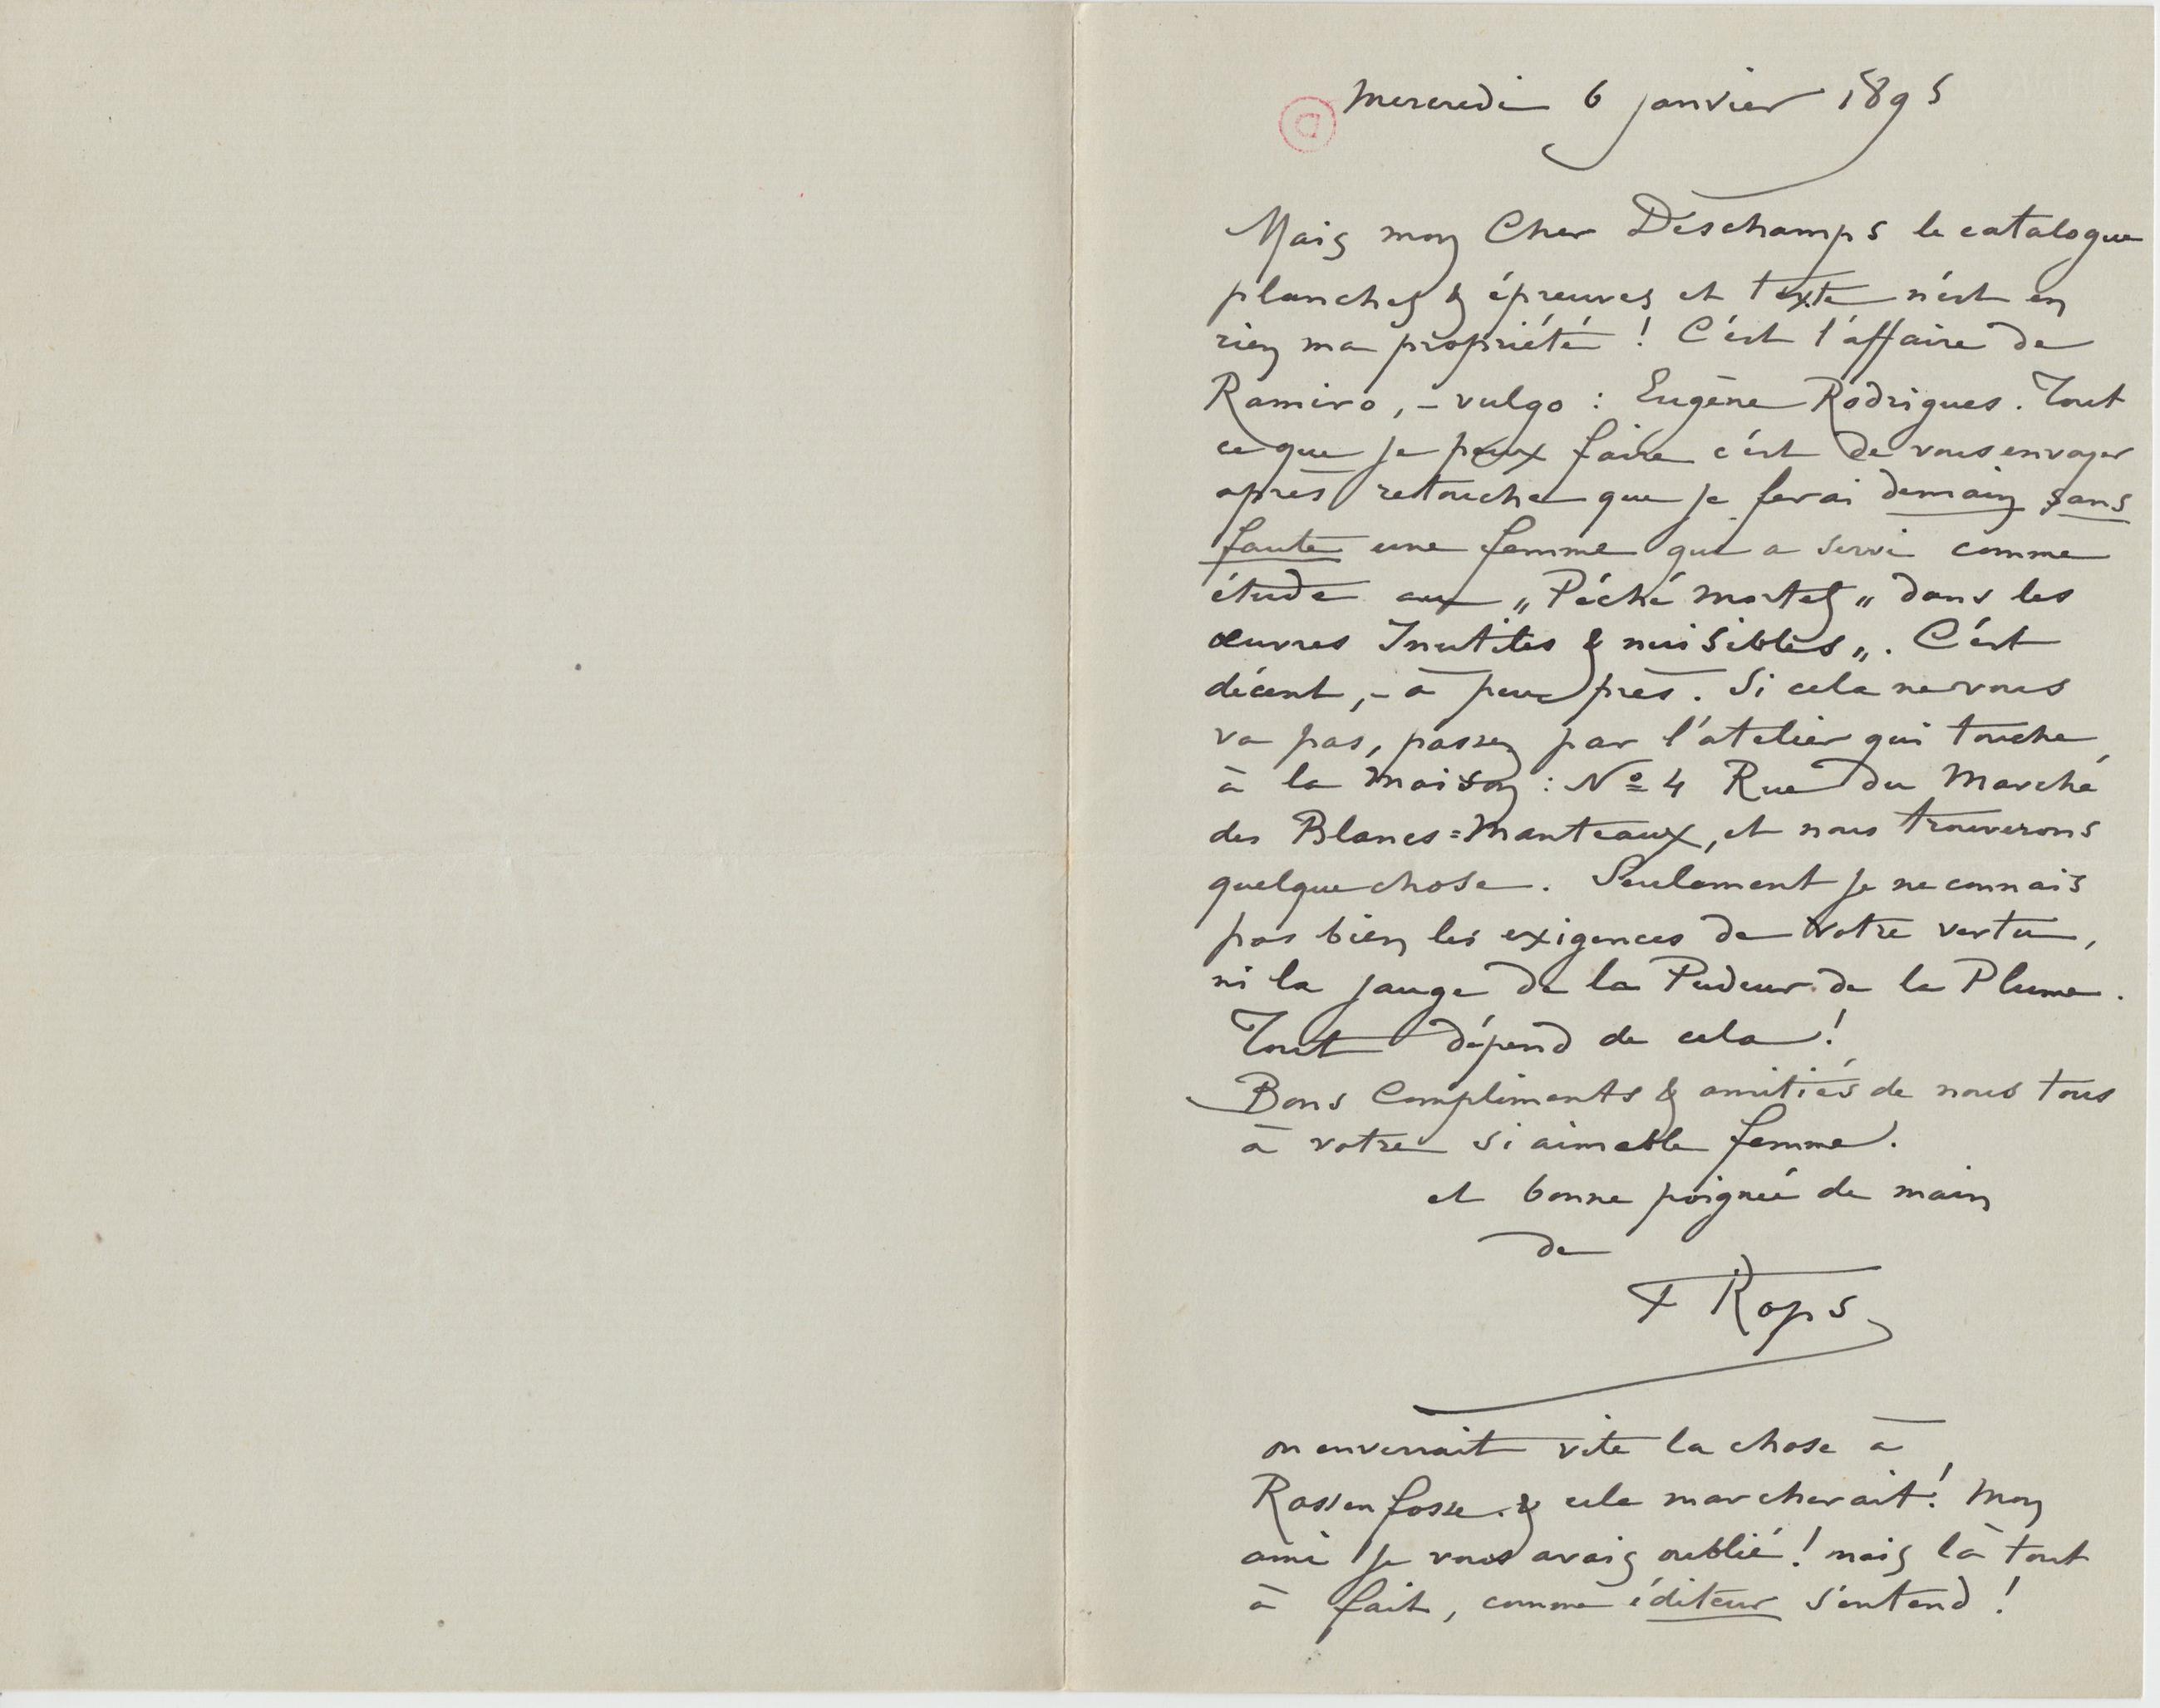 Mercredi 6 janvier 1895
Mais mon Cher Deschamps le catalogue
planches & épreuves et texte n'est en
rien ma propriété ! C'est l'affaire de
Ramiro, – vulgo : Eugène Rodrigues. Tout
ce que je peux faire c'est de vous envoyer
après retouche que je ferai demain sans
faute une femme qui a servi comme
étude au „Péché mortel„ dans les
œuvres Inutiles & nuisibles„. C'est
décent, – à peu près. Si cela ne vous
va pas, passez par l'atelier qui touche
à la maison : Nº 4 Rue du Marché
des Blancs=Manteaux, et nous trouverons
quelque chose. Seulement je ne connais
pas bien les exigences de votre vertu,
ni la jauge de la Pudeur de la Plume.
Tout dépend de cela !
Bons Compliments & amitiés de nous tous
à votre si aimable femme.
et bonne poignée de main
de
F Rops
on enverrait vite la chose à
Rassenfosse & cela marcherait ! Mon
ami je vous avais oublié ! mais là tout
à fait, comme éditeur s'entend !